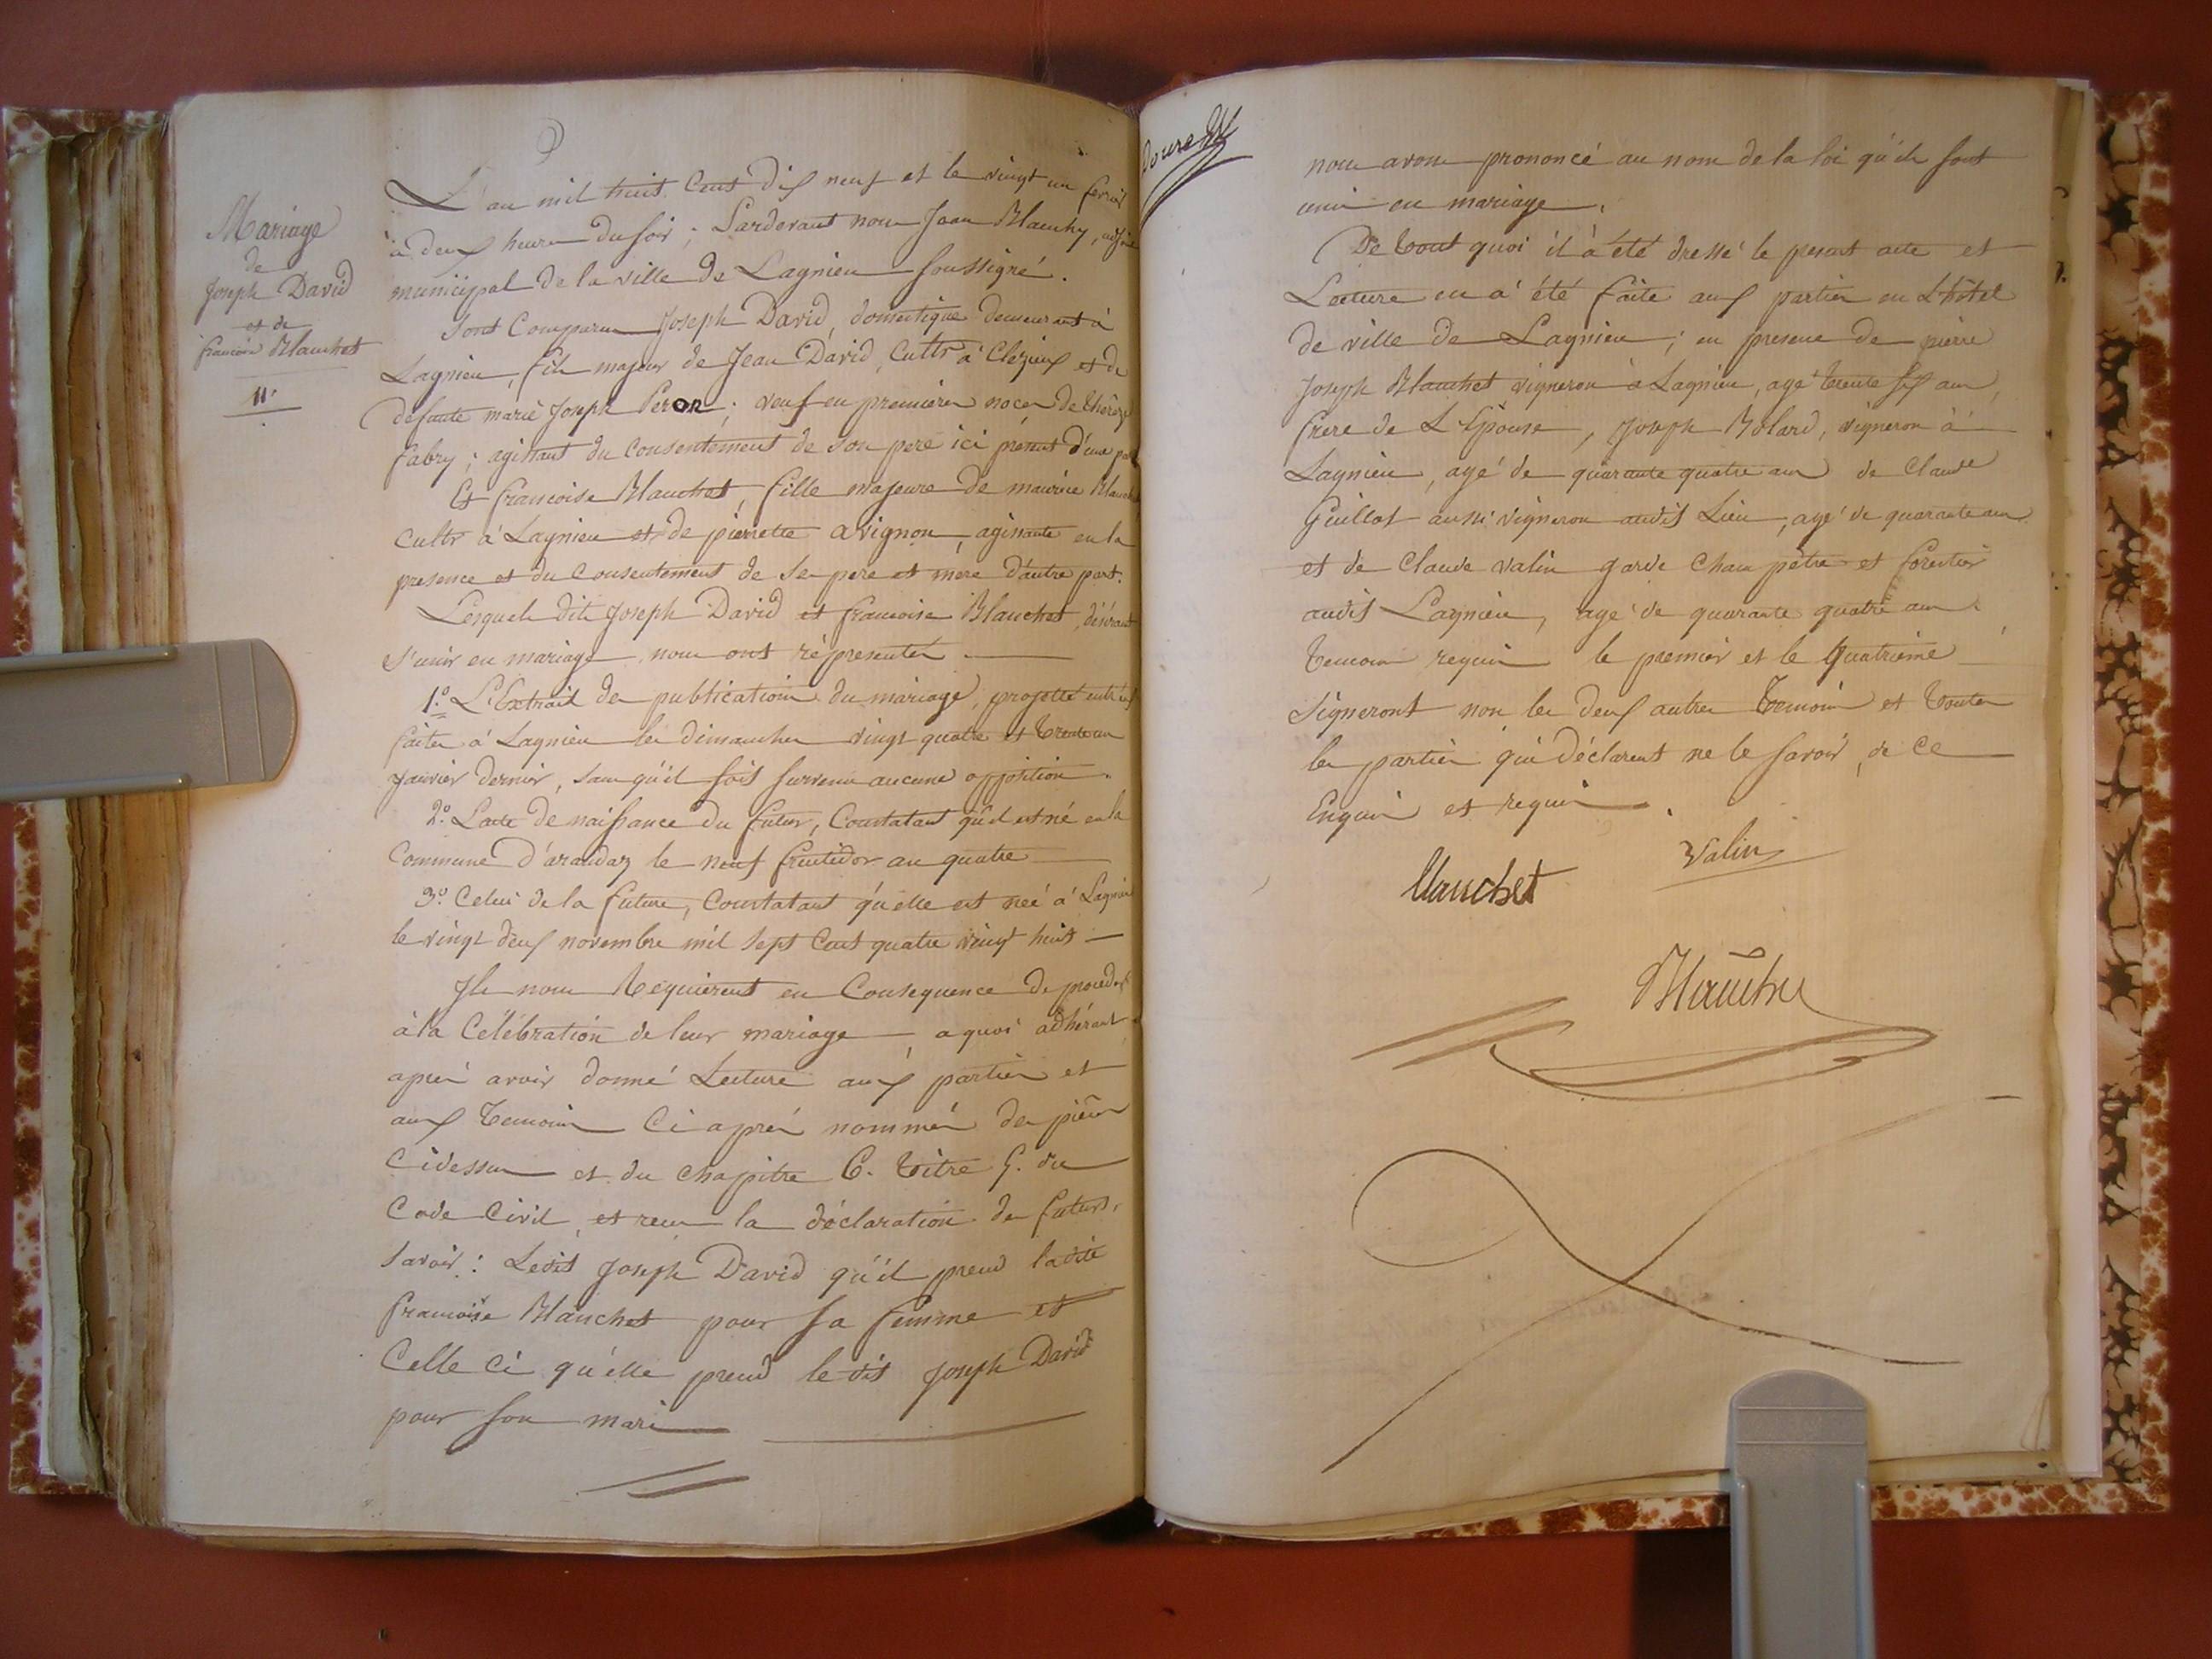 Mariage
de
Joseph David
et de
francoise Blanchet
11.
L'an mil huit Cent dix neuf et le vingt un fevrier
à deux heures du soir ; Pardevant nous Jean Blanchy, adjoint
municipal de la ville de Lagnieu soussigné.
Sont Comparus Joseph David, domestique demeurant à
Lagnieu, fils majeur de Jean David, Cultr à Clézieux et de
defunte marie Joseph Peron ; veuf en premieres noces de thérèze
fabry ; agissant du Consentement de son pere ici présent d'une part
Et francoise Blanchet, fille majeure de maurice Blanchet
Cultr à Lagnieu et de pierrette avignon, agissante en la
presence et du Consentement de ses pere et mere d'autre part.
Lesquels dits Joseph David et francoise Blanchet, désirant
s'unir en mariage nous ont réprésentés
1.º L'Extrait des publications du mariage, projetté entr'eux
faites à Lagnieu les dimanches vingt quatre et trente un
janvier dernier, sans qu'il soit survenu aucune opposition.
2.º L'acte de naissance du futur, Constatant qu'il est né en la
Commune d'arandaz le neuf fructidor an quatre
3.º Celui de la future, Constatant qu'elle est née à Lagnieu
le vingt deux novembre mil sept Cent quatre vingt huit
Ils nous Requierent en Consequence de proceder
à la Célébration de leur mariage, a quoi adhérant,
après avoir donné Lecture aux parties et
aux temoins Ci après nommés des pièces
Cidessus et du chapitre 6. titre 5. du
Code Civil, et reçu la déclaration des futurs,
savoir : Ledit Joseph David qu'il prend ladite
francoise Blanchet pour sa femme et
Celle Ci qu'elle prend le dit Joseph David
pour son mari
nous avons prononcé au nom de la loi qu'ils sont
unis en mariage.
De tout quoi il à été dressé le present acte et
Lecture en a été faite aux parties en L'hôtel
de ville de Lagnieu ; en presence de pierre
Joseph Blanchet vigneron à Lagnieu, agé trente six ans,
frere de L'Epouse, Joseph Bolard, vigneron à
Lagnieu, agé de quarante quatre ans de Claude
Guillot aussi vigneron audit Lieu, agé de quarante ans
et de Claude valin garde Champêtre et forestier
audit Lagnieu, agé de quarante quatre ans.
temoins requis le premier et le quatrième
signeront non les deux autres temoins et toutes
les parties qui déclarent ne le savoir, de Ce
Enquis et requis.
Valin
blanchet
Blanchy